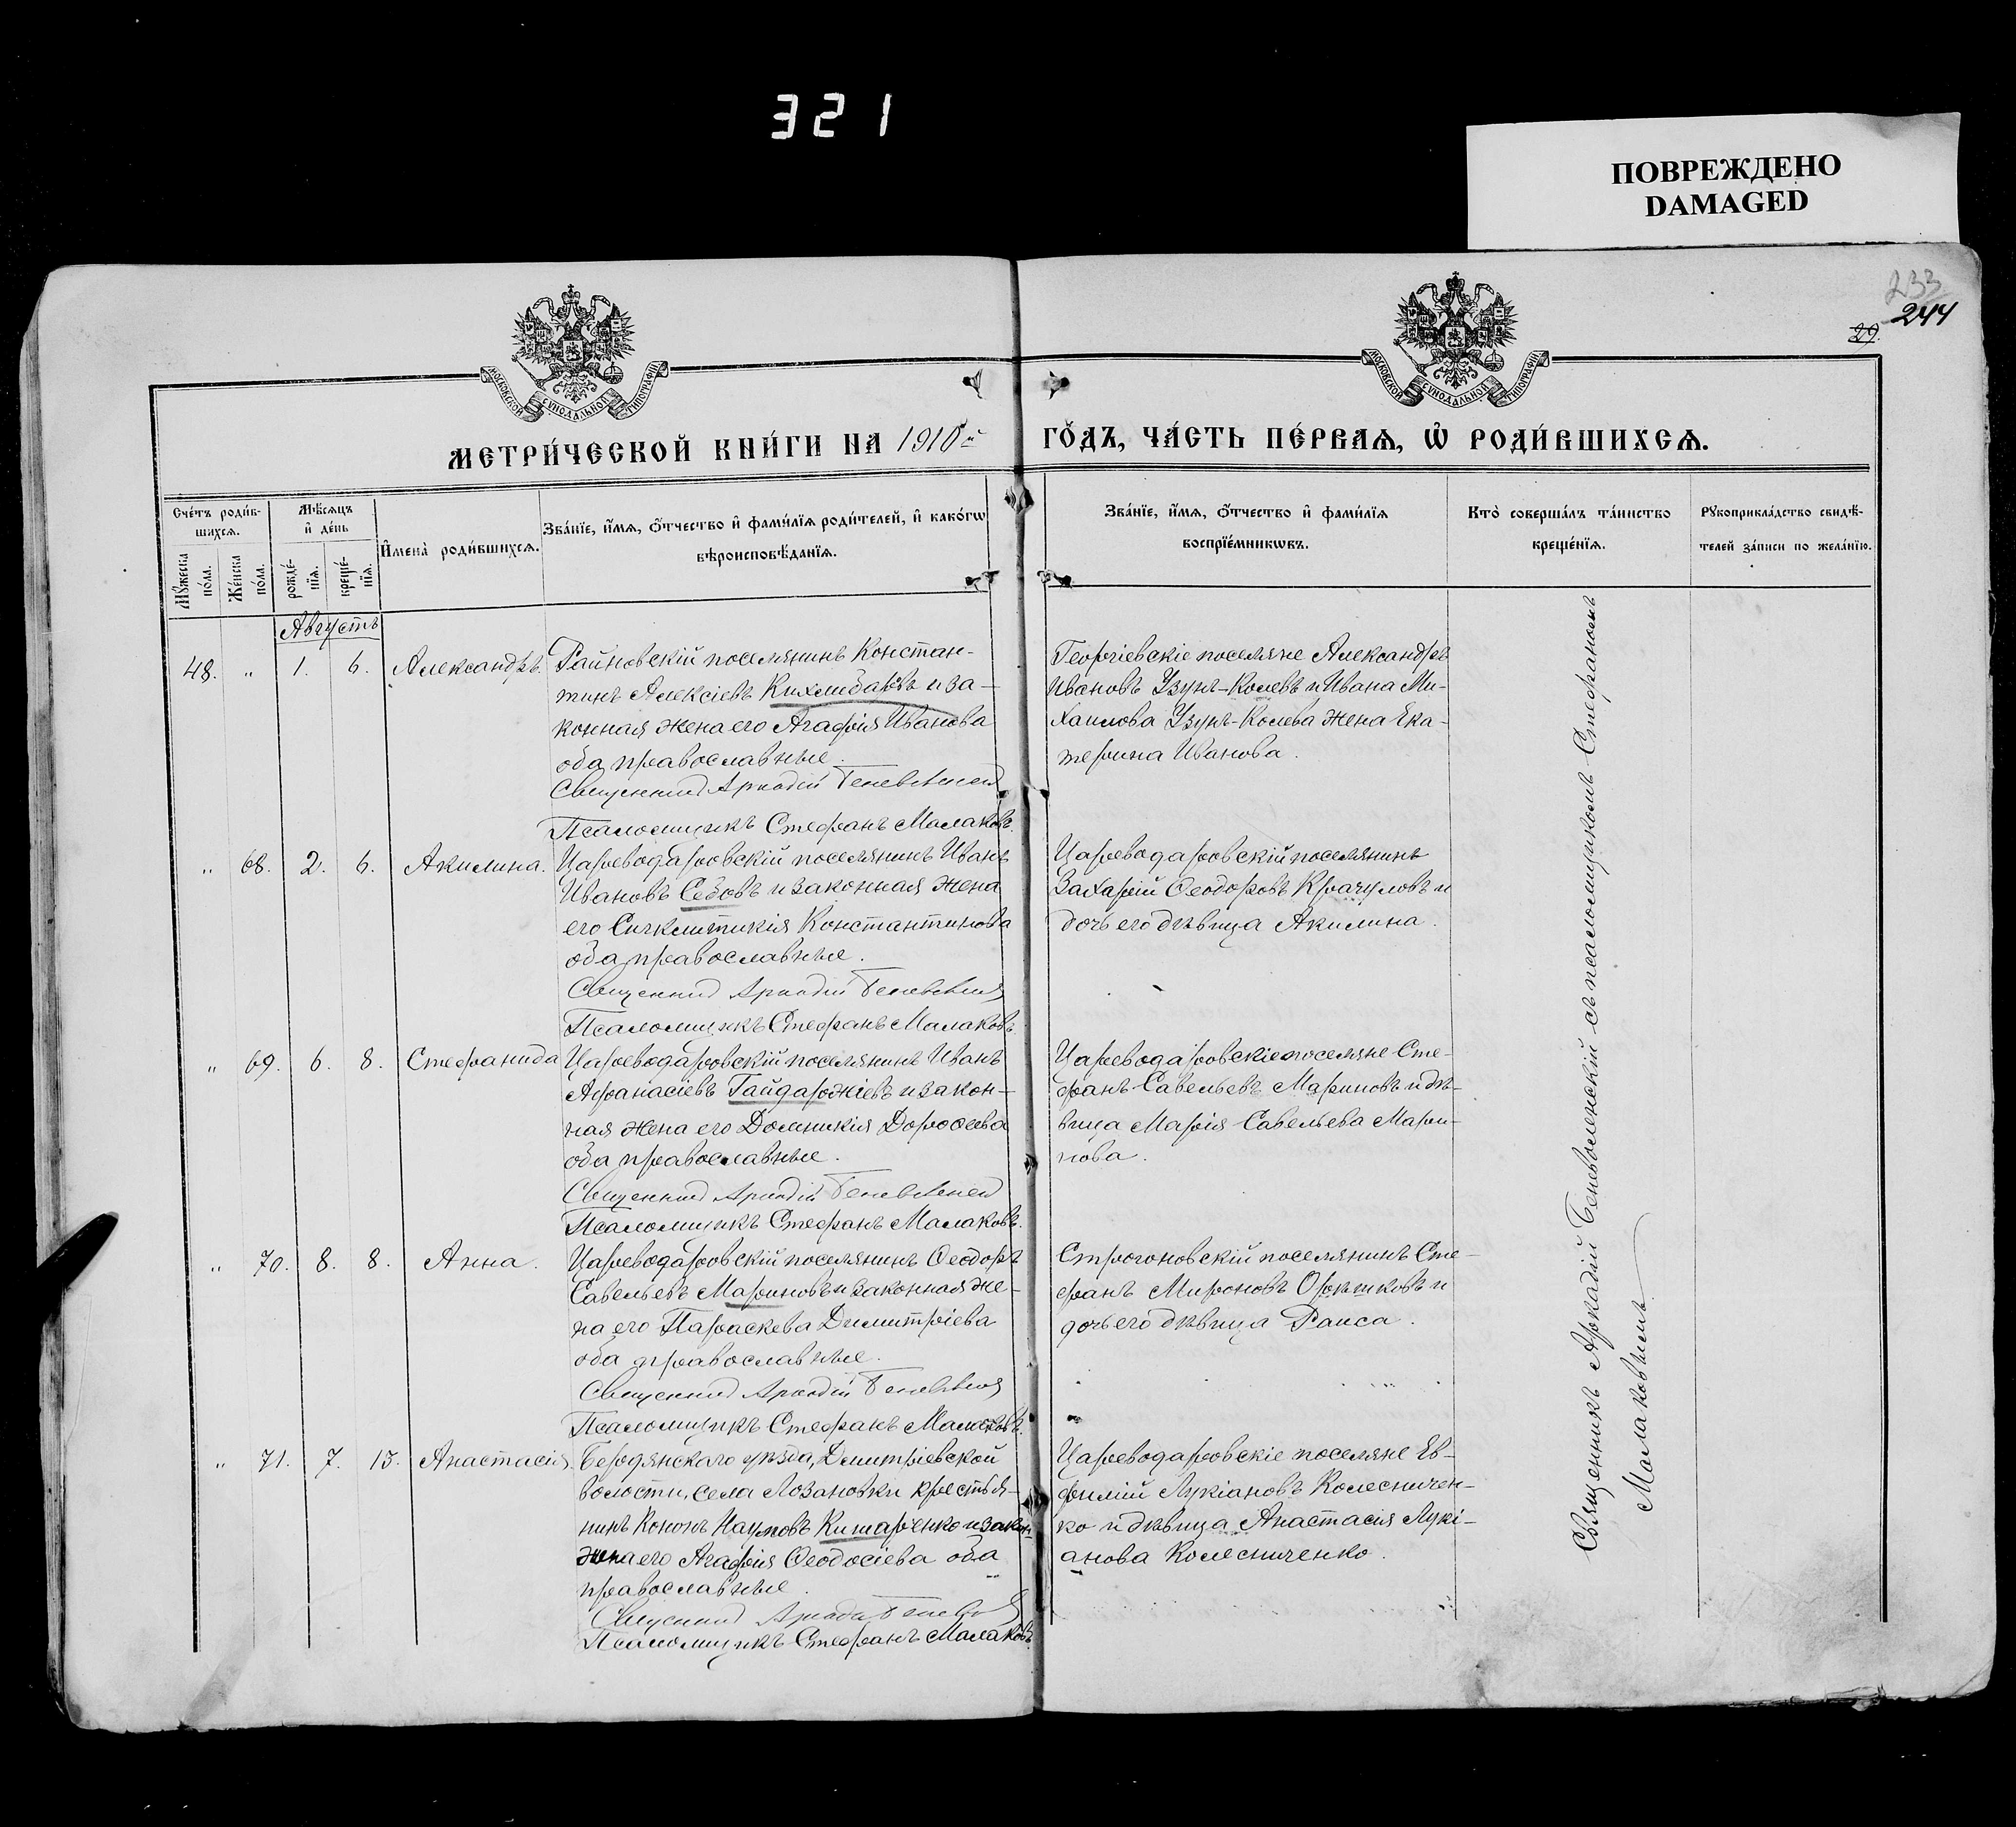 321
ПОВРЕЖДЕНО
DAMAGED
233
244
29.
МОСКОВСКОЙ СѴНОДАЛЬНОЙ ТИПОГРАФІИ
МОСКОВСКОЙ СѴНОДАЛЬНОЙ ТИПОГРАФІИ
МЕТРИ́ЧЕСКОЙ КНИ́ГИ НА 1910й ГО́ДЪ, ЧА́СТЬ ПЕ́РВАѦ, Ѡ҆ РОДИ́ВШИХСѦ.
Сче́тъ роди́в-
шихсѧ.
Мꙋ́жеска по́ла.
Же́нска по́ла.
Мѣ́сѧцъ
и҆ де́нь
рожде́-
нїѧ.
креще́-
нїѧ.
И҆мена̀ роди́вшихсѧ.
Зва́нїе, и҆́мѧ, ѻ҆́тчество и҆ фами́лїѧ роди́телей, и҆ како́гѡ
вѣроисповѣ́данїѧ.
Зва́нїе, и҆́мѧ, ѻ҆́тчество и҆ фами́лїѧ
воспрїе́мникѡвъ.
Кто̀ соверша́лъ та́инство
креще́нїѧ.
Рꙋкоприкла́дство свидѣ́-
телей за́писи по жела́нїю.
Августъ
48. " 1. 6. Александръ. Райновскій поселянинъ Констан-
тинъ Алексіевъ Кихлибаровъ и за-
конная жена его Агафія Иванова
оба православные.
Священникъ Аркадій
Псаломщикъ Стефанъ Малаковъ.
Георгіевскіе поселяне Александръ
Ивановъ Узунъ-Колевъ и Ивана Ми-
хаилова Узунъ-Колева жена Ека-
терина Иванова.
" 68. 2. 6. Акилина. Цареводаровскій поселянинъ Иванъ
Ивановъ Себовъ и законная жена
его Синклитикія Константинова
оба православные.
Священникъ Аркадій
Псаломщикъ Стефанъ Малаковъ.
Цареводаровскій поселянинъ
Захарій Ѳеодоровъ Крачуловъ и
дочь его дѣвица Акилина.
" 69. 6. 8. Стефанида Цареводаровскій поселянинъ Иванъ
Афанасіевъ Гайдаржіевъ и закон-
ная жена его Домникія Дороѳеева
оба православные.
Священникъ Аркадій
Псаломщикъ Стефанъ Малаковъ.
Цареводаровскіе поселяне Сте-
фанъ Савельевъ Мариновъ и дѣ-
вица Марія Савельева Мари-
нова.
" 70. 8. 8. Анна. Цареводаровскій поселянинъ Ѳеодоръ
Савельевъ Мариновъ и законная же-
на его Параскева Димитріева
оба православные.
Священникъ Аркадій
Псаломщикъ Стефанъ Малаковъ.
Строгоновскій поселянинъ Сте-
фанъ Мироновъ Орѣшковъ и
дочь его дѣвица Раиса.
" 71. 7. 15. Анастасія. Бердянскаго уѣзда, Димитріевской
волости, села Лозановки крестья-
нинъ Кононъ Наумовъ Китарченко и закон.
жена его Агафія Ѳеодосіева оба
православные.
Священникъ
Псаломщикъ Стефанъ Малаковъ.
Цареводаровскіе поселяне Ев-
фимій Лукіановъ Колесничен-
ко и дѣвица Анастасія Лукі-
анова Колесниченко.
Священникъ Аркадій Беневоленскій съ псаломщикомъ Стефаномъ
Малаковымъ.